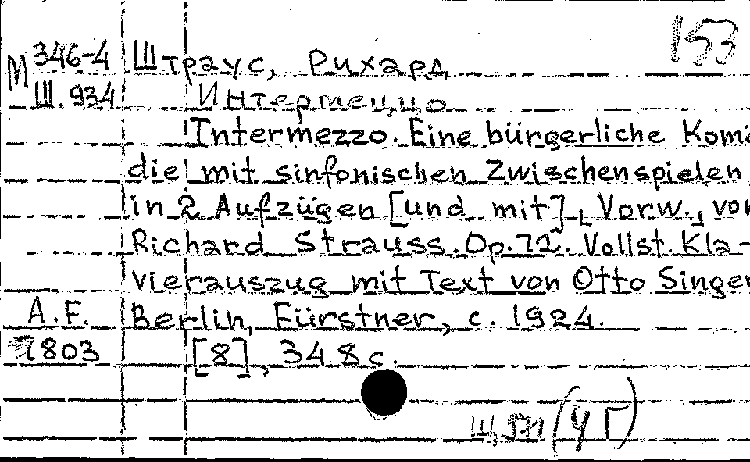 153
М 346-4 Штраус, Рихард
Ш.934 Интермеццо
Intermezzo. Eine bürgerliche Komö
die mit sinfonischen Zwischenspielen
in 2 Aufzügen [und mit], Vorw., von
Richard Strauss. Op. 72. Vollst. Kla-
vierauszug mit Text von Otto Singer
A.F. Berlin, Fürstner, c. 1924.
1803 [8], 348 с.
(ЧГ)